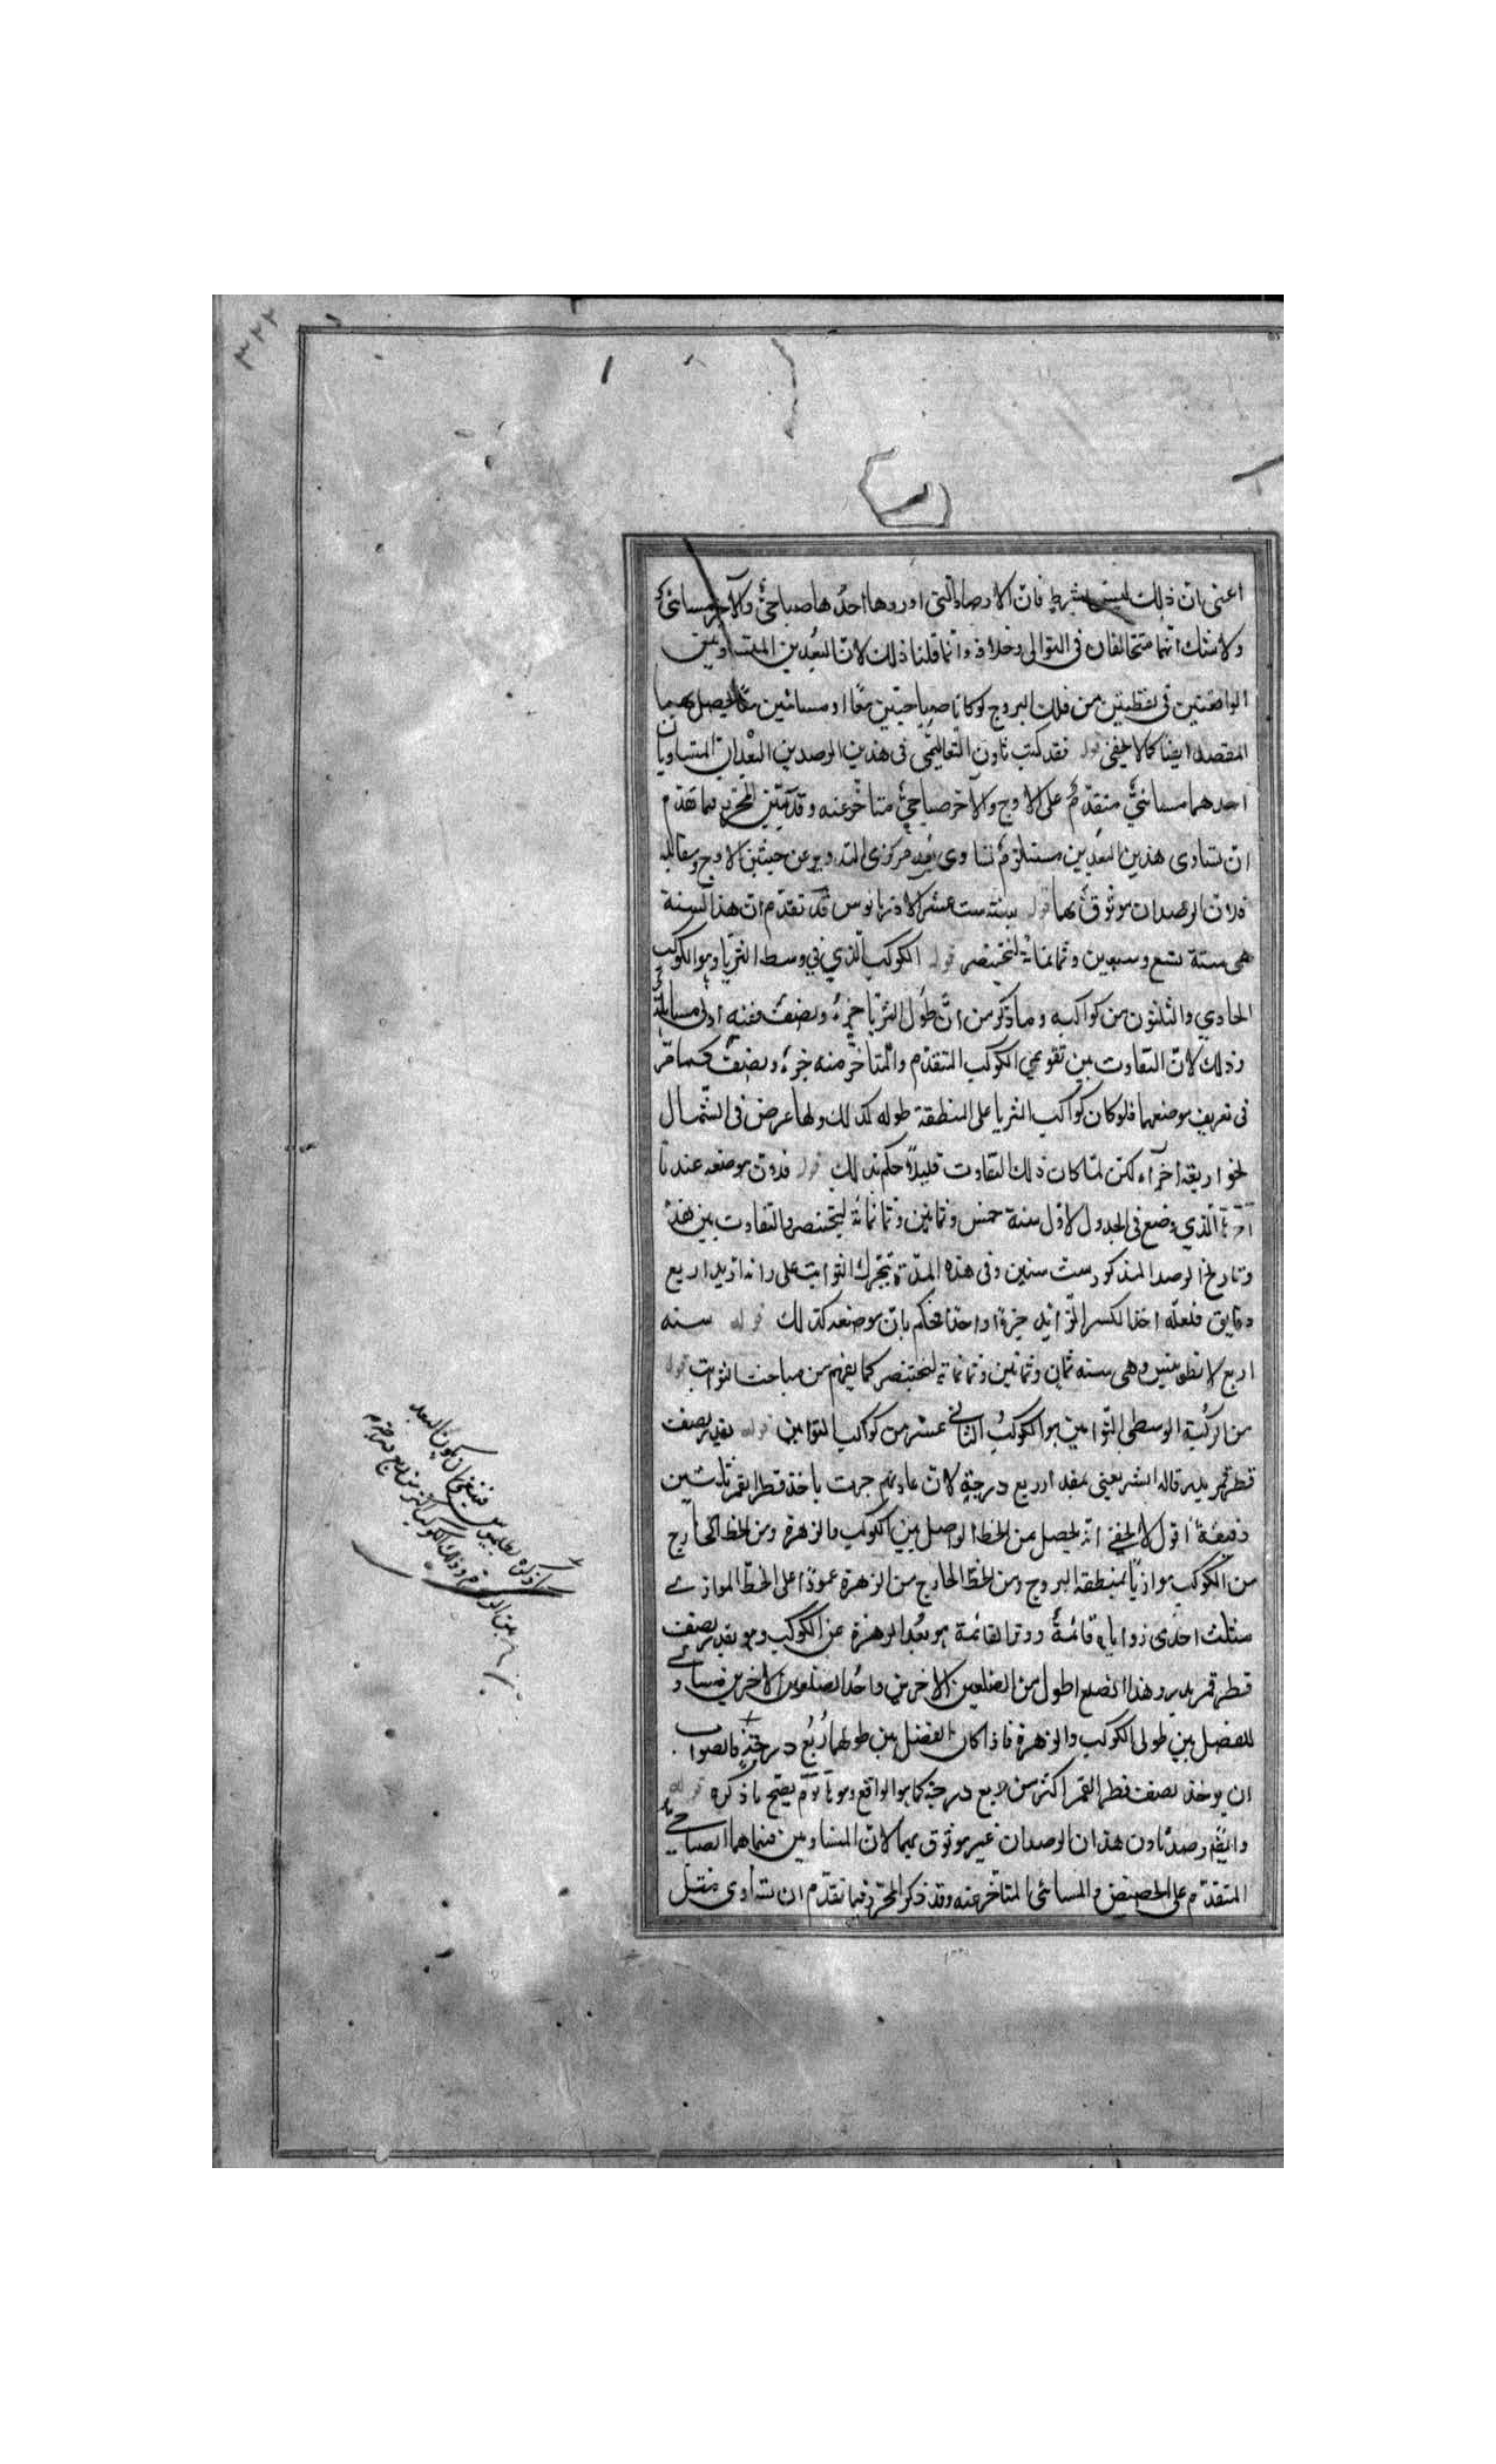 اعنى ان ذلك ليس بشرط فان الارصاد التى اوردها احدها صباحىّ والآخر مسائىّ
ولا شك انهما متخالفان فى التوالى وخلافه وانما قلنا ذلك لان البعدين المتساويين
الواقعتين فى نقطتين من فلك البروج لو كانا صباحيتين معًا او مسائيتين معًا لحصل بهما
المقصد ايضا كما لا يخفى قوله فقد كتب ثاون التعاليمى فى هذين الرصدين البعدان المتساويان
احدهما مسائىّ متقدّم على الاوج والآخر صباحىّ متأخر عنه وقد بيّن المحرر فيما تقدم
ان تساوى هذين البعدين مستلزم تساوى بعد مركزى التدوير عن جنبتى الاوج ومقابله
فلان الرصدان موثوق بهما قوله سنة ست عشر لاذريانوس قد تقدم ان هذا السنة
هى سنة تسع وسبعين وثمانمائة لبختنصر قوله الكوكب الذي في وسط الثريا وهو الكوكب
الحادي والثلثون من كواكبه وما ذكر من انّ طول الثريا جزء ونصف ففيه ادنى مساهلة
وذلك لان التفاوت بين تقويمي الكوكب المتقدّم والمتأخر منه جزء ونصف كما مرّ
فى تعريف موضعهما فلو كان كواكب الثريا على المنطقة طوله كذلك ولها عرض فى الشمال
نحو اربعة اجزاء لكن لما كان ذلك التفاوت قليلاً حكم بذلك قوله فدون موضعه عندنا
الذي وضع فى الجدول لاول سنة خمس وثمانين وثمانمائة لبختنصر والتفاوت بين هذه
وتاريخ الرصد المذكور ست سنين وفى هذه المدّة يتحرك الثوابت على رائه ازيد اربع
دقايق فلعله اخذ الكسر الزائد جزءا واحدا فحكم بان موضعه كذلك قوله سنة
اربع لانطونينس وهى سنة ثمان وثمانين وثمانمائة لبختنصر كما يفهم من مباحث الثوابت قوله
من الركبة الوسطى التوامين هو الكوكب الثانى عشر من كواكب التوامين قوله بقدر نصف
قطر قمر بدير قاله البشر يعنى بمقدار ربع درجة لان عادتهم جرت باخذ قطر القمر ثلثين
دقيقة اقول لا يخفى انه يحصل من الخط الواصل بين الكوكب والزهرة ومن الخط الخارج
من الكوكب موازيا لمنطقة البروج ومن الخط الخارج من الزهرة عمودا على الخط الموازى
مثلث احدى زواياه قائمة ووتر القائمة هو بعد الزهرة عن الكوكب وهو بقدر نصف
قطر قمر بدير وهذا الضلع اطول من الضلعين الاخرين واحد الضلعين الاخرين مساو
للفضل بين طولى الكوكب والزهرة فاذا كان الفضل بين طولهما ربع درجة فالصواب
ان يوخذ نصف قطر القمر اكثر من ربع درجة كما هو الواقع وهو يصح ما ذكره قوله
وايضا رصد ثاون هذان الرصدان غير موثوق بهما لان المتساويين فيهما هما الصباحى
المتقدّم على الحضيض والمسائى المتأخر عنه وقد ذكر المحرر فيما تقدّم ان تساوى مثل
ما ذكره بطلميوس فينبغى ان يكون البعد
بين الزهرة وذلك الكوكب اكثر من ربع درجة